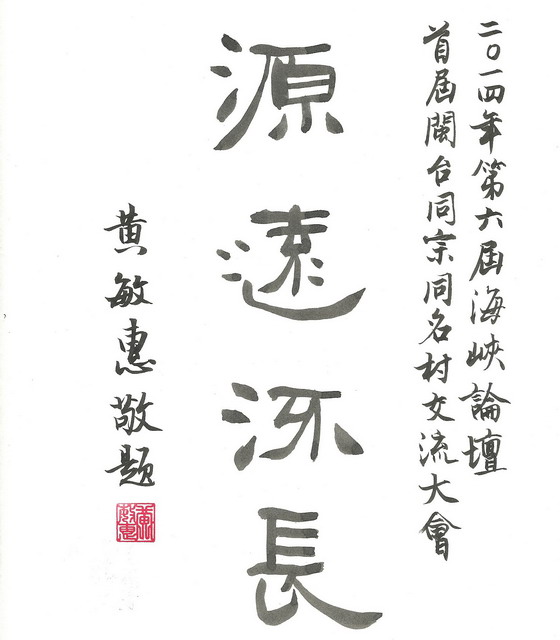 二〇一四年第六屆海峽論壇
首屆閩台同宗同名村交流大會
源遠流長
黃敏惠敬題